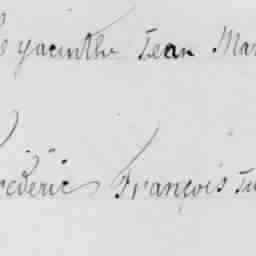 Hyacinthe Jean Mar
rederic François Ju